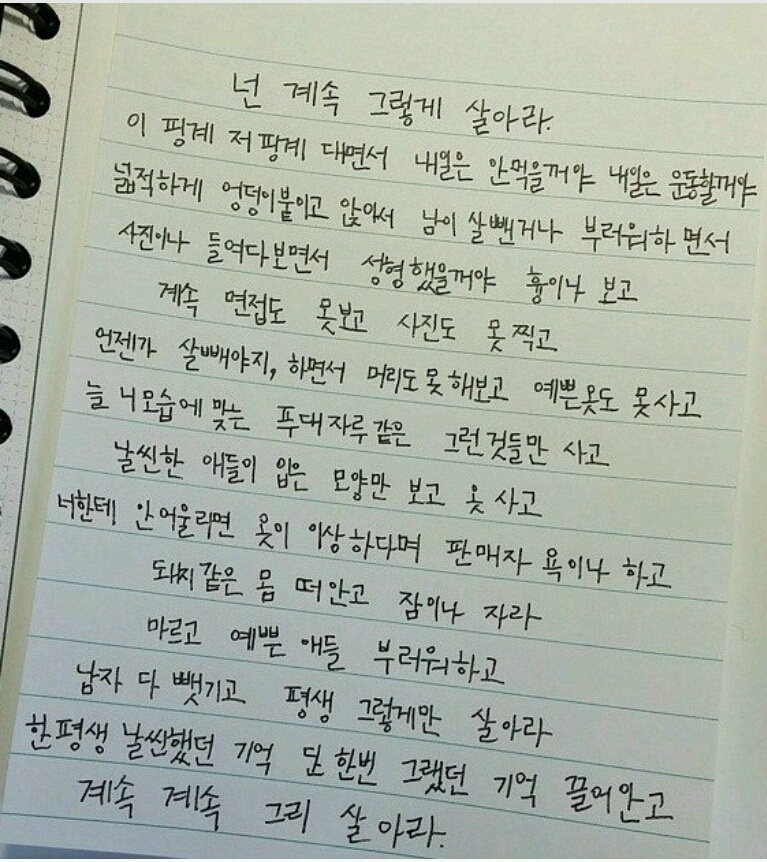 넌 계속 그렇게 살아라.
이 핑계 저 핑계 대면서 내일은 안먹을꺼야 내일은 운동할꺼야
넓적하게 엉덩이붙이고 앉아서 남이 살뺀거나 부러워하면서
사진이나 들여다보면서 성형했을꺼야 흉이나 보고
계속 면접도 못보고 사진도 못찍고
언젠가 살빼야지, 하면서 머리도못해보고 예쁜옷도 못사고
늘 니모습에 맞는 푸대자루같은 그런것들만 사고
날씬한 애들이 입은 모양만 보고 옷 사고
너한테 안어울리면 옷이 이상하다며 판매자 욕이나 하고
돼지같은 몸 떠안고 잠이나 자라
마르고 예쁜 애들 부러워하고
남자 다 뺏기고 평생 그렇게만 살아라
한평생 날씬했던 기억 단 한번 그랬던 기억 끌어안고
계속 계속 그리 살아라.